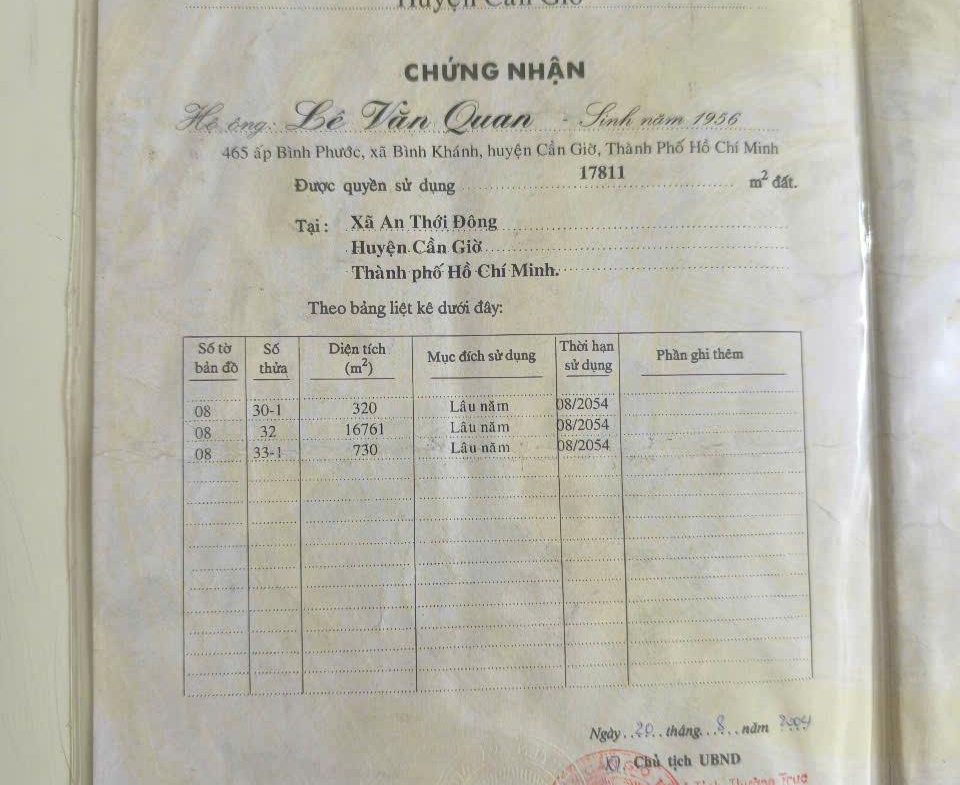 Huyện Cần Giờ
CHỨNG NHẬN
Hộ ông: Lê Văn Quan - Sinh năm 1956
465 ấp Bình Phước, xã Bình Khánh, huyện Cần Giờ, Thành Phố Hồ Chí Minh
Được quyền sử dụng 17811 m² đất.
Tại: Xã An Thới Đông
Huyện Cần Giờ
Thành phố Hồ Chí Minh.
Theo bảng liệt kê dưới đây:
Số tờ bản đồ Số thửa Diện tích (m²) Mục đích sử dụng Thời hạn sử dụng Phần ghi thêm
08 30-1 320 Lâu năm 08/2054
08 32 16761 Lâu năm 08/2054
08 33-1 730 Lâu năm 08/2054
Ngày 20 tháng 8 năm 2004
KT. Chủ tịch UBND
Thường Trực